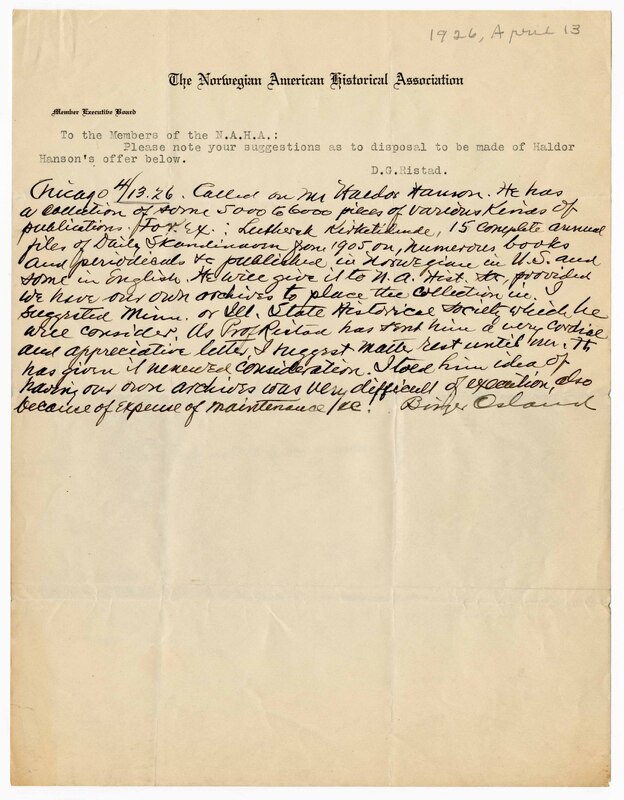 1926, April 13
The Norwegian American Historical Association
Member Executive Board
To the Members of the N.A.H.A.:
Please note your suggestions as to disposal to be made of Haldor
Hanson's offer below.
D.G.Ristad.
Chicago 4/13.26. Called on Mr Haldor Hanson. He has
a collection of some 5000 to 6000 pieces of various kinds of
publications. For Ex.: Luthersk Kirketidende, 15 complete annual
files of Daily Skandinaven from 1905 on, numerous books
and periodicals &c published in Norwegian in U.S. and
some in English. He will give it to N.A. Hist. A., provided
we have our own archives to place the collection in. I
suggested Minn. or Ill. State Historical Society, which he
will consider. As Prof Ristad has sent him a very cordial
and appreciative letter, I suggest matter rest until Mr. H
has given it renewed consideration. I told him idea of
having our own archives was very difficult of execution, also
because of expense of maintenance &c. Birger Osland